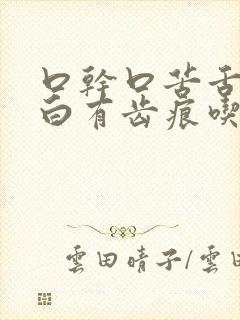 口幹口苦舌
白有齿痕喫
雲田晴子/雲田